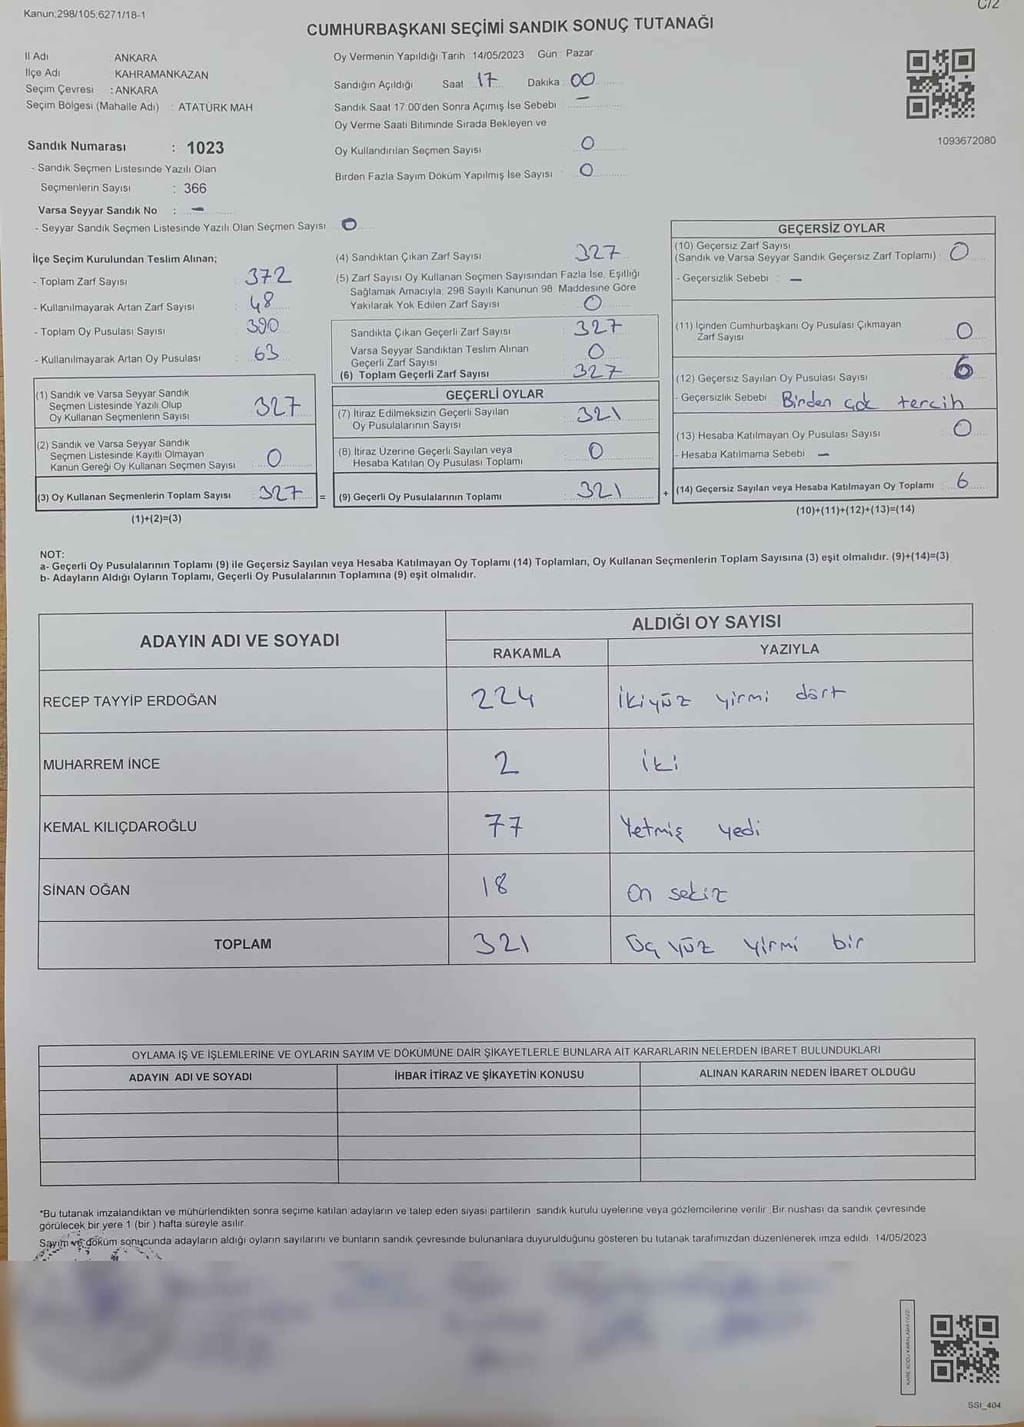 Kanun:298/105;6271/18-1
C/2
CUMHURBAŞKANI SEÇİMİ SANDIK SONUÇ TUTANAĞI
İl Adı ANKARA
İlçe Adı KAHRAMANKAZAN
Seçim Çevresi : ANKARA
Seçim Bölgesi (Mahalle Adı) : ATATÜRK MAH
Sandık Numarası : 1023
- Sandık Seçmen Listesinde Yazılı Olan
Seçmenlerin Sayısı : 366
Varsa Seyyar Sandık No : —
- Seyyar Sandık Seçmen Listesinde Yazılı Olan Seçmen Sayısı 0
Oy Vermenin Yapıldığı Tarih : 14/05/2023 Gün : Pazar
Sandığın Açıldığı Saat 17 Dakika 00
Sandık Saat 17.00'den Sonra Açımış İse Sebebi —
Oy Verme Saati Bitiminde Sırada Bekleyen ve
Oy Kullandırılan Seçmen Sayısı 0
Birden Fazla Sayım Döküm Yapılmış İse Sayısı 0
1093672080
İlçe Seçim Kurulundan Teslim Alınan;
- Toplam Zarf Sayısı 372
- Kullanılmayarak Artan Zarf Sayısı 48
- Toplam Oy Pusulası Sayısı 390
- Kullanılmayarak Artan Oy Pusulası 63
(1) Sandık ve Varsa Seyyar Sandık
Seçmen Listesinde Yazılı Olup
Oy Kullanan Seçmenlerin Sayısı 327
(2) Sandık ve Varsa Seyyar Sandık
Seçmen Listesinde Kayıtlı Olmayan
Kanun Gereği Oy Kullanan Seçmen Sayısı 0
(3) Oy Kullanan Seçmenlerin Toplam Sayısı 327 =
(1)+(2)=(3)
(4) Sandıktan Çıkan Zarf Sayısı 327
(5) Zarf Sayısı Oy Kullanan Seçmen Sayısından Fazla İse, Eşitliği
Sağlamak Amacıyla, 298 Sayılı Kanunun 98. Maddesine Göre
Yakılarak Yok Edilen Zarf Sayısı 0
Sandıkta Çıkan Geçerli Zarf Sayısı 327
Varsa Seyyar Sandıktan Teslim Alınan
Geçerli Zarf Sayısı 0
(6) Toplam Geçerli Zarf Sayısı 327
GEÇERLİ OYLAR
(7) İtiraz Edilmeksizin Geçerli Sayılan
Oy Pusulalarının Sayısı 321
(8) İtiraz Üzerine Geçerli Sayılan veya
Hesaba Katılan Oy Pusulası Toplamı 0
(9) Geçerli Oy Pusulalarının Toplamı 321 +
GEÇERSİZ OYLAR
(10) Geçersiz Zarf Sayısı
(Sandık ve Varsa Seyyar Sandık Geçersiz Zarf Toplamı) : 0
- Geçersizlik Sebebi : —
(11) İçinden Cumhurbaşkanı Oy Pusulası Çıkmayan
Zarf Sayısı 0
(12) Geçersiz Sayılan Oy Pusulası Sayısı 6
- Geçersizlik Sebebi Birden çok tercih
(13) Hesaba Katılmayan Oy Pusulası Sayısı 0
- Hesaba Katılmama Sebebi —
(14) Geçersiz Sayılan veya Hesaba Katılmayan Oy Toplamı 6
(10)+(11)+(12)+(13)=(14)
NOT:
a- Geçerli Oy Pusulalarının Toplamı (9) ile Geçersiz Sayılan veya Hesaba Katılmayan Oy Toplamı (14) Toplamları, Oy Kullanan Seçmenlerin Toplam Sayısına (3) eşit olmalıdır. (9)+(14)=(3)
b- Adayların Aldığı Oyların Toplamı, Geçerli Oy Pusulalarının Toplamına (9) eşit olmalıdır.
ADAYIN ADI VE SOYADI ALDIĞI OY SAYISI
RAKAMLA YAZIYLA
RECEP TAYYİP ERDOĞAN 224 İkiyüz yirmi dört
MUHARREM İNCE 2 iki
KEMAL KILIÇDAROĞLU 77 Yetmiş yedi
SİNAN OĞAN 18 On sekiz
TOPLAM 321 Üç yüz yirmi bir
OYLAMA İŞ VE İŞLEMLERİNE VE OYLARIN SAYIM VE DÖKÜMÜNE DAİR ŞİKAYETLERLE BUNLARA AİT KARARLARIN NELERDEN İBARET BULUNDUKLARI
ADAYIN ADI VE SOYADI İHBAR İTİRAZ VE ŞİKAYETİN KONUSU ALINAN KARARIN NEDEN İBARET OLDUĞU
*Bu tutanak imzalandıktan ve mühürlendikten sonra seçime katılan adayların ve talep eden siyasi partilerin sandık kurulu üyelerine veya gözlemcilerine verilir. Bir nüshası da sandık çevresinde
görülecek bir yere 1 (bir) hafta süreyle asılır.
Sayım ve döküm sonucunda adayların aldığı oyların sayılarını ve bunların sandık çevresinde bulunanlara duyurulduğunu gösteren bu tutanak tarafımızdan düzenlenerek imza edildi. 14/05/2023
SSI_404